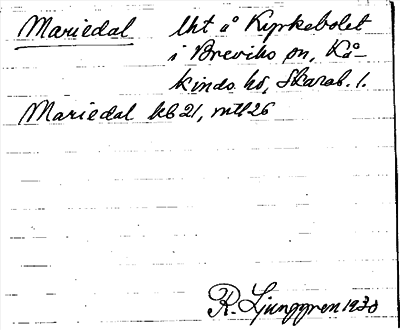 Mariedal lht å Kyrkebolet
i Breviks sn, Kå-
kinds hd, Skarab. l.
Mariedal kb 21, mtl 26
R. Ljunggren 1930